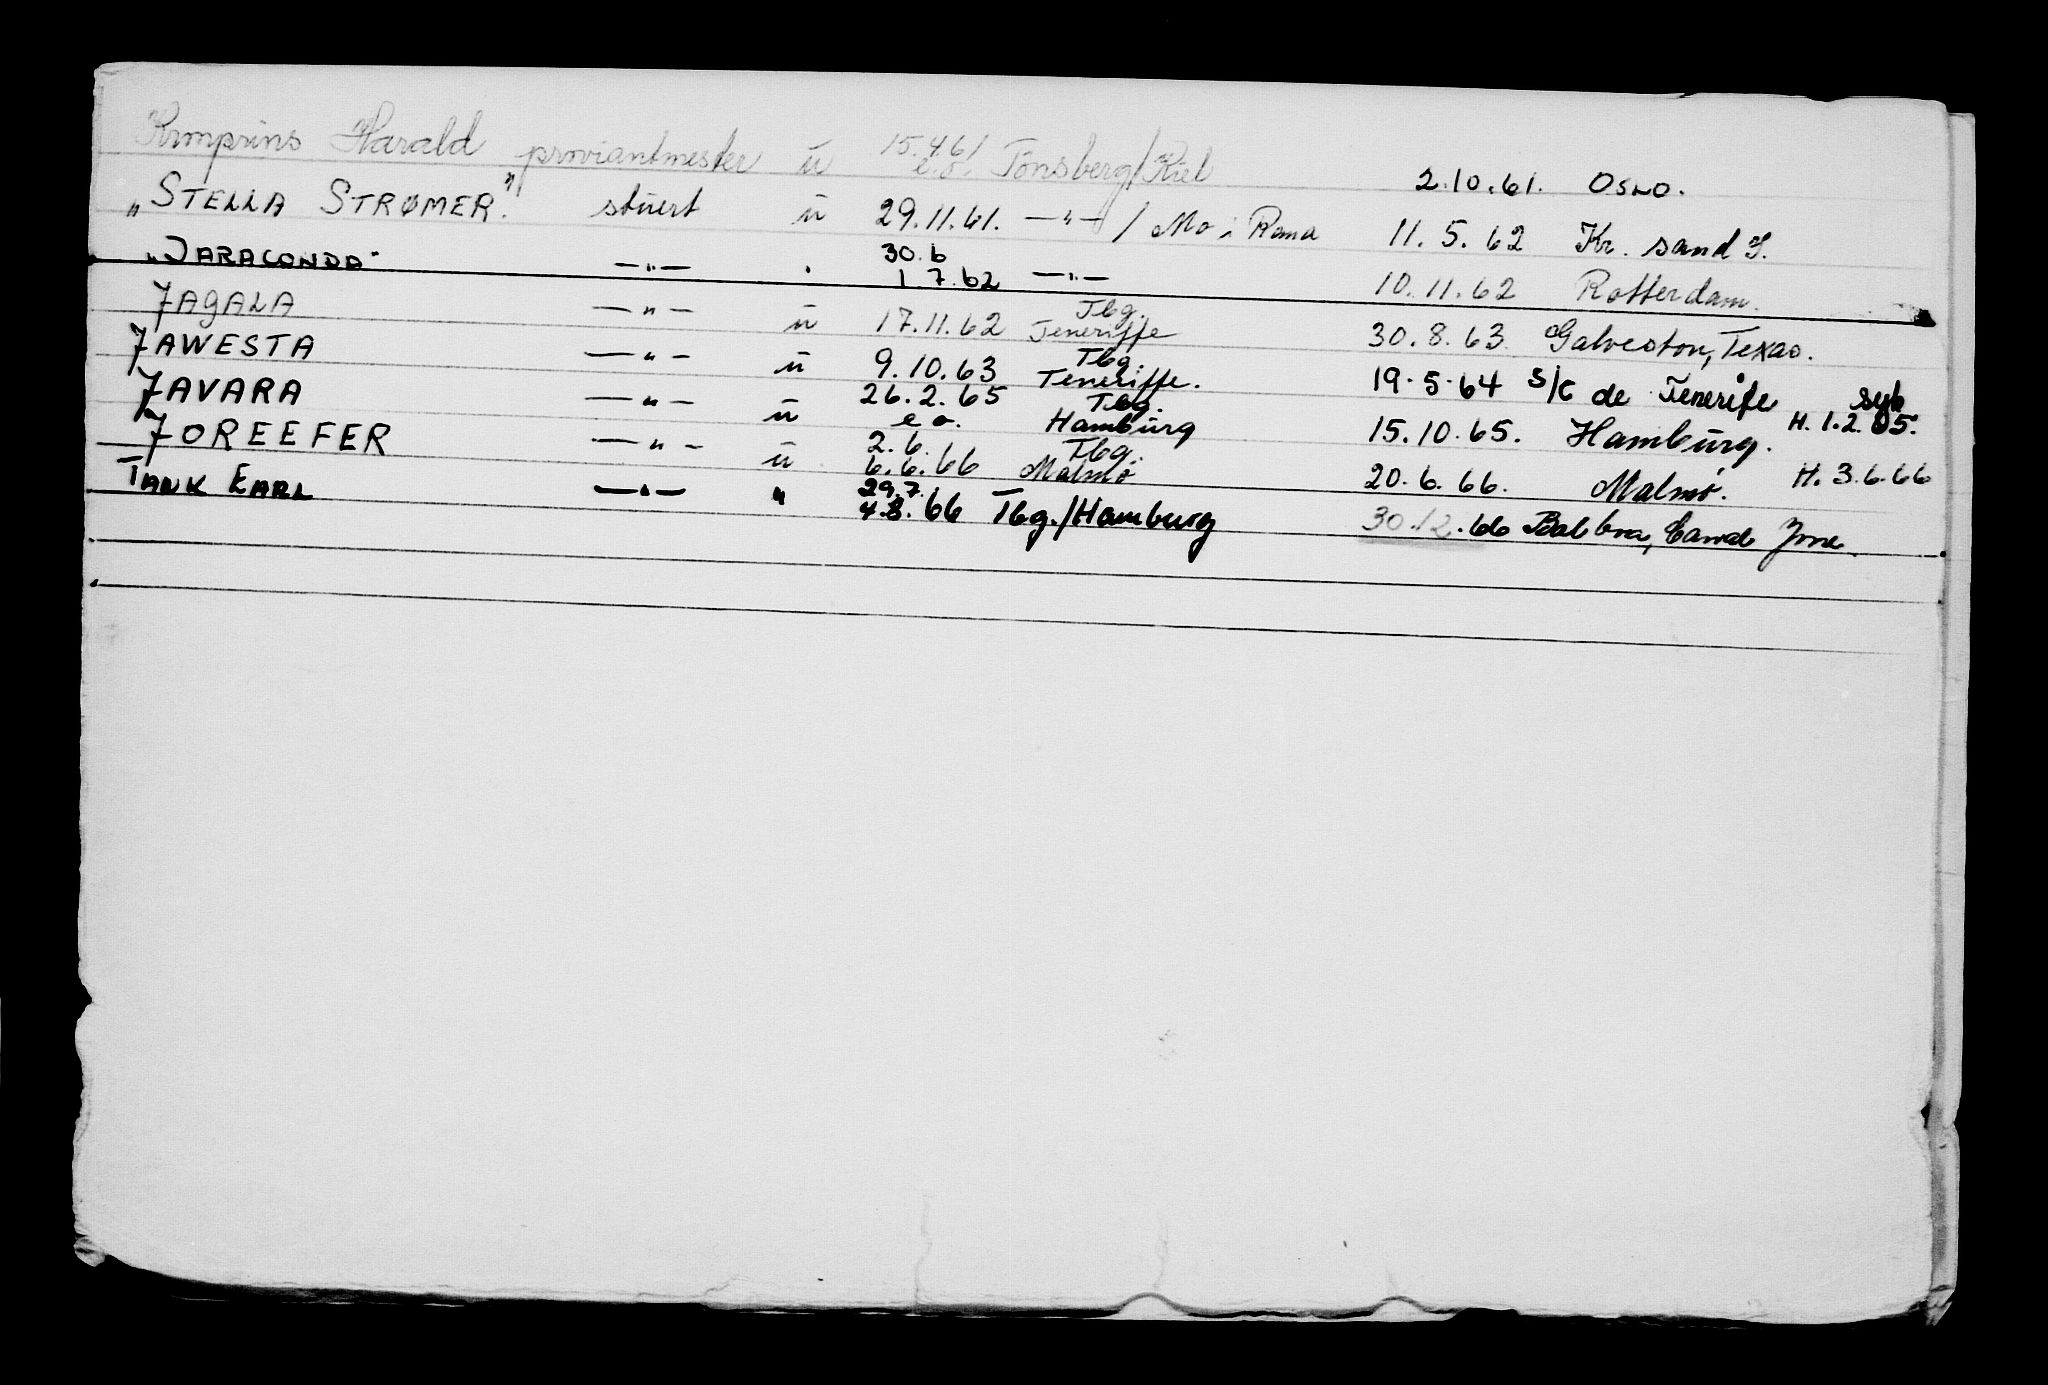 Kronprins Harald proviantmester u 15.4.61 e.o. Tönsberg/Kiel 2.10.61. OSLO.
„STELLA STRØMER." stuert ū 29.11.61. —"— / Mo i Rana 11.5.62 Kr. sand S.
„JARACONDA" —"— " 30.6 1.7.62 —"— 10.11.62 Rotterdam.
JAGALA —"— ū 17.11.62 Tbg. Teneriffe 30.8.63 Galveston, Texas.
JAWESTA —"— ū 9.10.63 Tbg. Teneriffe. 19.5.64 S/C de Tenerife syk
JAVARA —"— ū 26.2.65 e.o. Tbg. Hamburg 15.10.65. Hamburg. H. 1.2.65.
JOREEFER —"— ū 2.6. 6.6.66 Tbg. Malmö 20.6.66. Malmö. H. 3.6.66
TANK EARL —"— " 29.7. 4.8.66 Tbg./Hamburg 30.12.66 Balboa, Canal Zone.